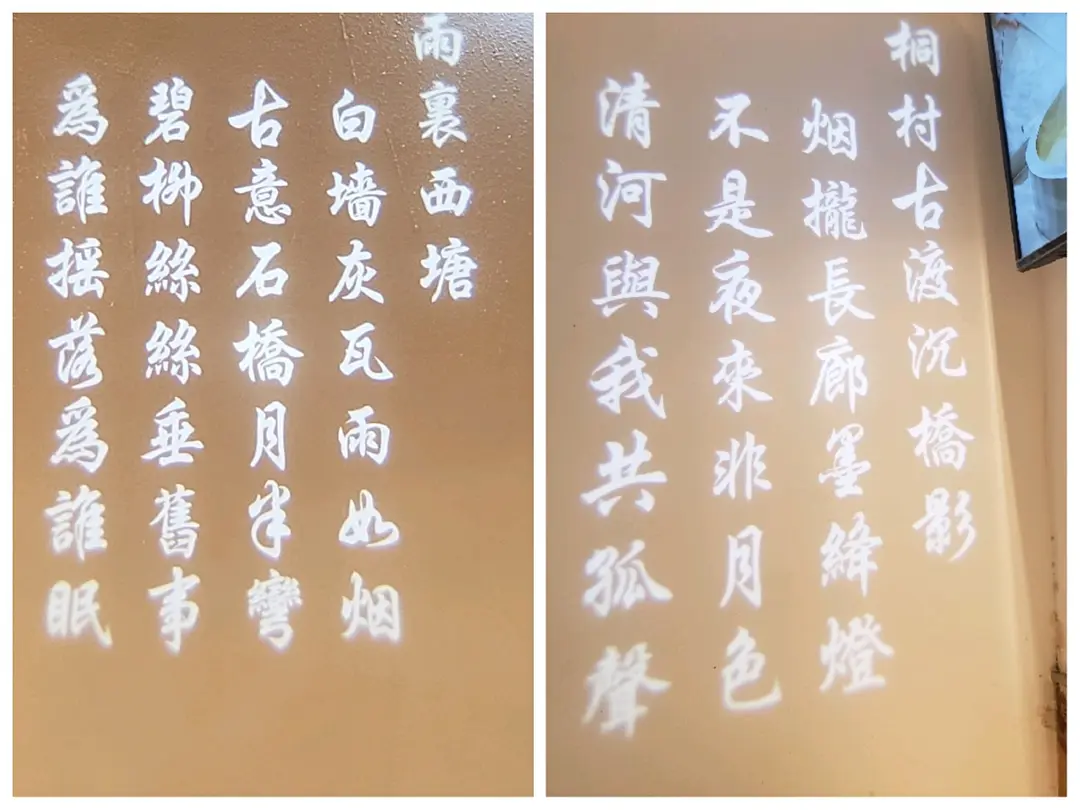 雨裏西塘
白墻灰瓦雨如烟
古意石橋月半彎
碧柳絲絲垂舊事
爲誰摇落爲誰眠
桐村古渡沉橋影
烟攏長廊墨絳燈
不是夜來非月色
清河與我共孤聲